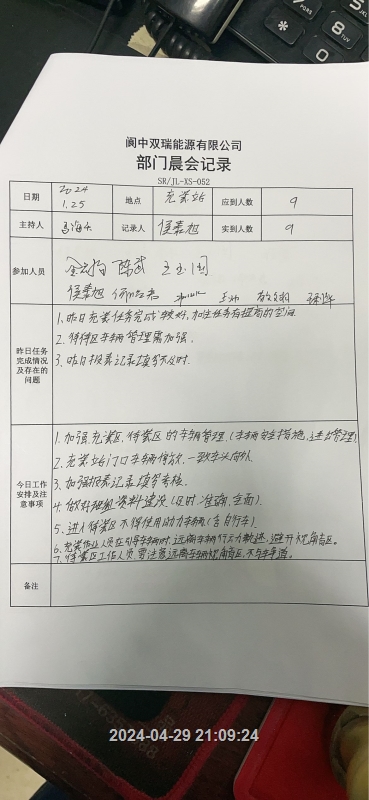 阆中双瑞能源有限公司
部门晨会记录
SR/JL-XS-052
日期 2024 1.25 地点 充装站 应到人数 9
主持人 记录人 侯素旭 实到人数 9
参加人员
侯素旭
昨日任务完成情况及存在的问题
1.昨日充装任务完成较好,加注任务有提高的空间
2.待装区车辆管理需加强.
3.昨日报表记录填写不及时.
今日工作安排及注意事项
1.加强充装区,待装区的车辆管理(车辆安全措施,进出管理)
2.充装站门口车辆停放,一致车头向外.
3.加强报表记录填写考核.
4.做好班组资料建设(及时.准确.全面).
5.进入待装区不得使用动力车辆(含自行车).
6.充装作业人员在引导车辆时,远离车辆行驶轨迹,避开视角盲区。
7.待装区工作人员,需注意远离车辆视角盲区,不与车争道。
备注
2024-04-29 21:09:24